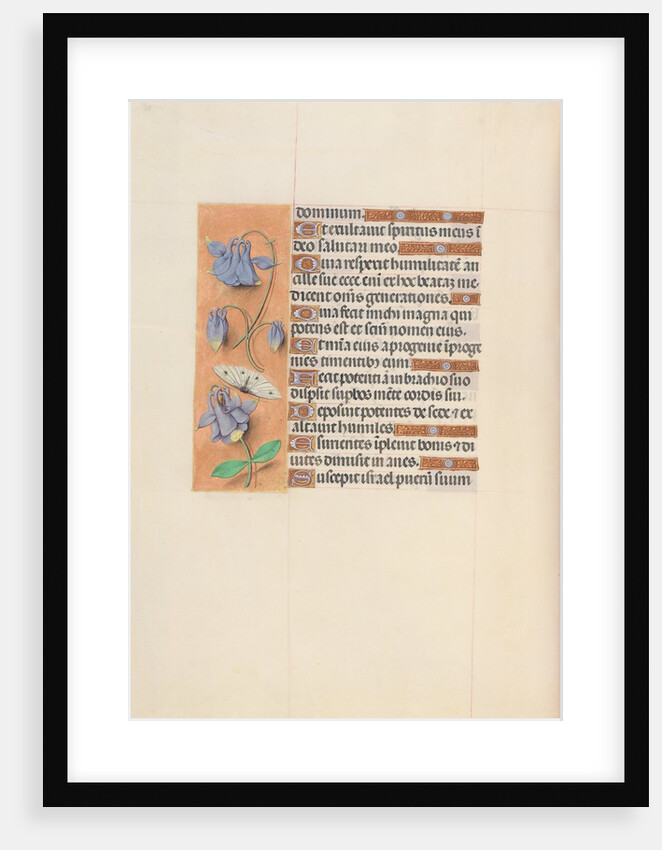 dominum.
Et exultauit spiritus meus ī
deo salutari meo.
Quia respexit humilitatē an
cille sue ecce em̄ ex hoc beatā me
dicent om̄s generationes.
Quia fecit michi magna qui
potens est et sctm̄ nomen eius.
Et mīa eius a progenie ī proge
nies timentibꝫ eum.
Fecit potentiā in brachio suo
dispsit supbos mēte cordis sui.
Deposuit potentes de sede ⁊ ex
altauit humiles.
Esurientes īpleuit bonis ⁊ di
uites dimisit inanes.
Suscepit israel puerū suum